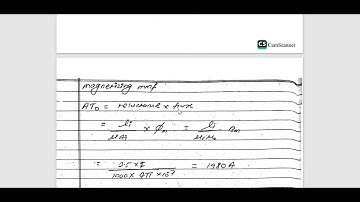 CS CamScanner
magnetizing mmf
AT₀ = reluctance × flux
= li / μA × φm = li / μrμ₀ Bm
= 2.5 × 1 / 1000 × 4π × 10⁻⁷ = 1980 A